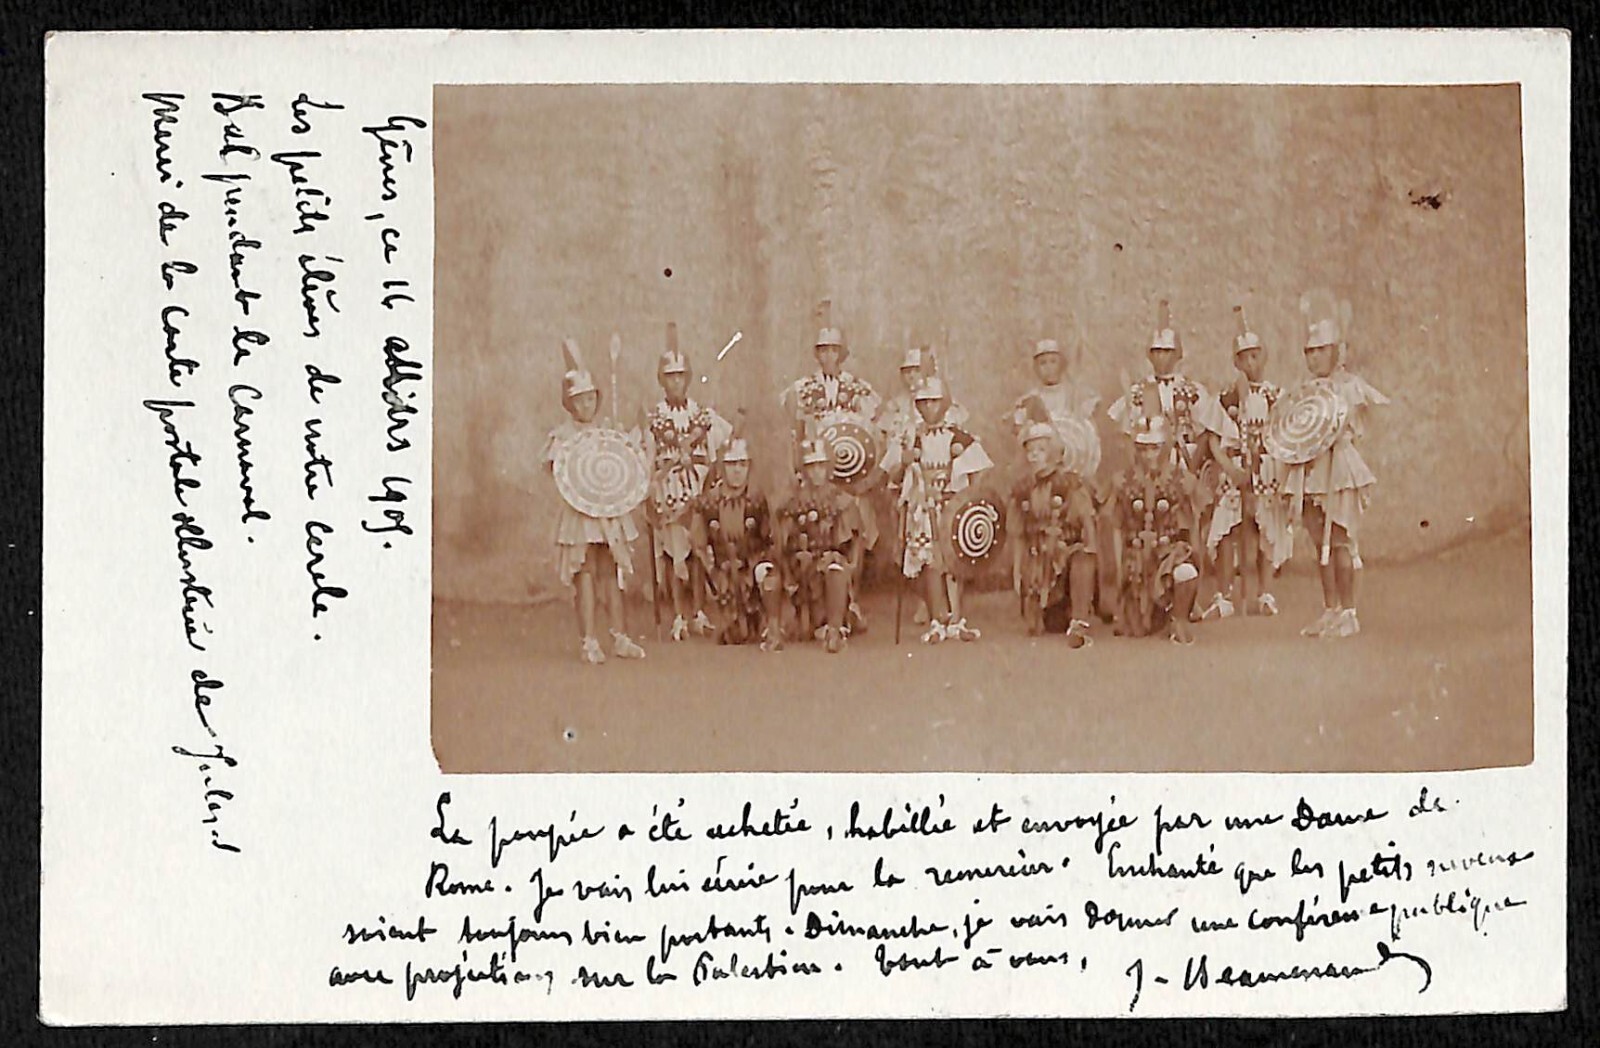 Gênes, ce 16 1905.
Les petits élèves de notre cercle.
Bal pendant le Carnaval.
Merci de la Carte postale illustrée de Jules.
La poupée a été achetée, habillée et envoyée par une Dame de
Rome. Je vais lui écrire pour la remercier. Enchanté que les petits neveux
soient toujours bien portants. Dimanche, je vais donner une conférence publique
avec projections sur la Palestine. Tout à vous,